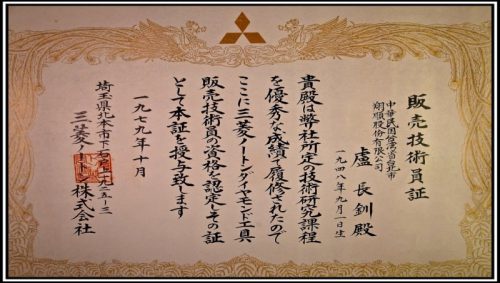 販売技術員証
中華民国台湾台北市
翔順股份有限公司
盧長釧殿
一九四八年九月一日生
貴殿は弊社所定の技術研究課程
を優秀な成績で履修されたので
ここに三菱ノートンダイヤモンド工具
販売技術員の資格を認定しその証
として本証を授与致します
一九七九年十月
埼玉県北本市下石戸
三菱ノートン株式会社